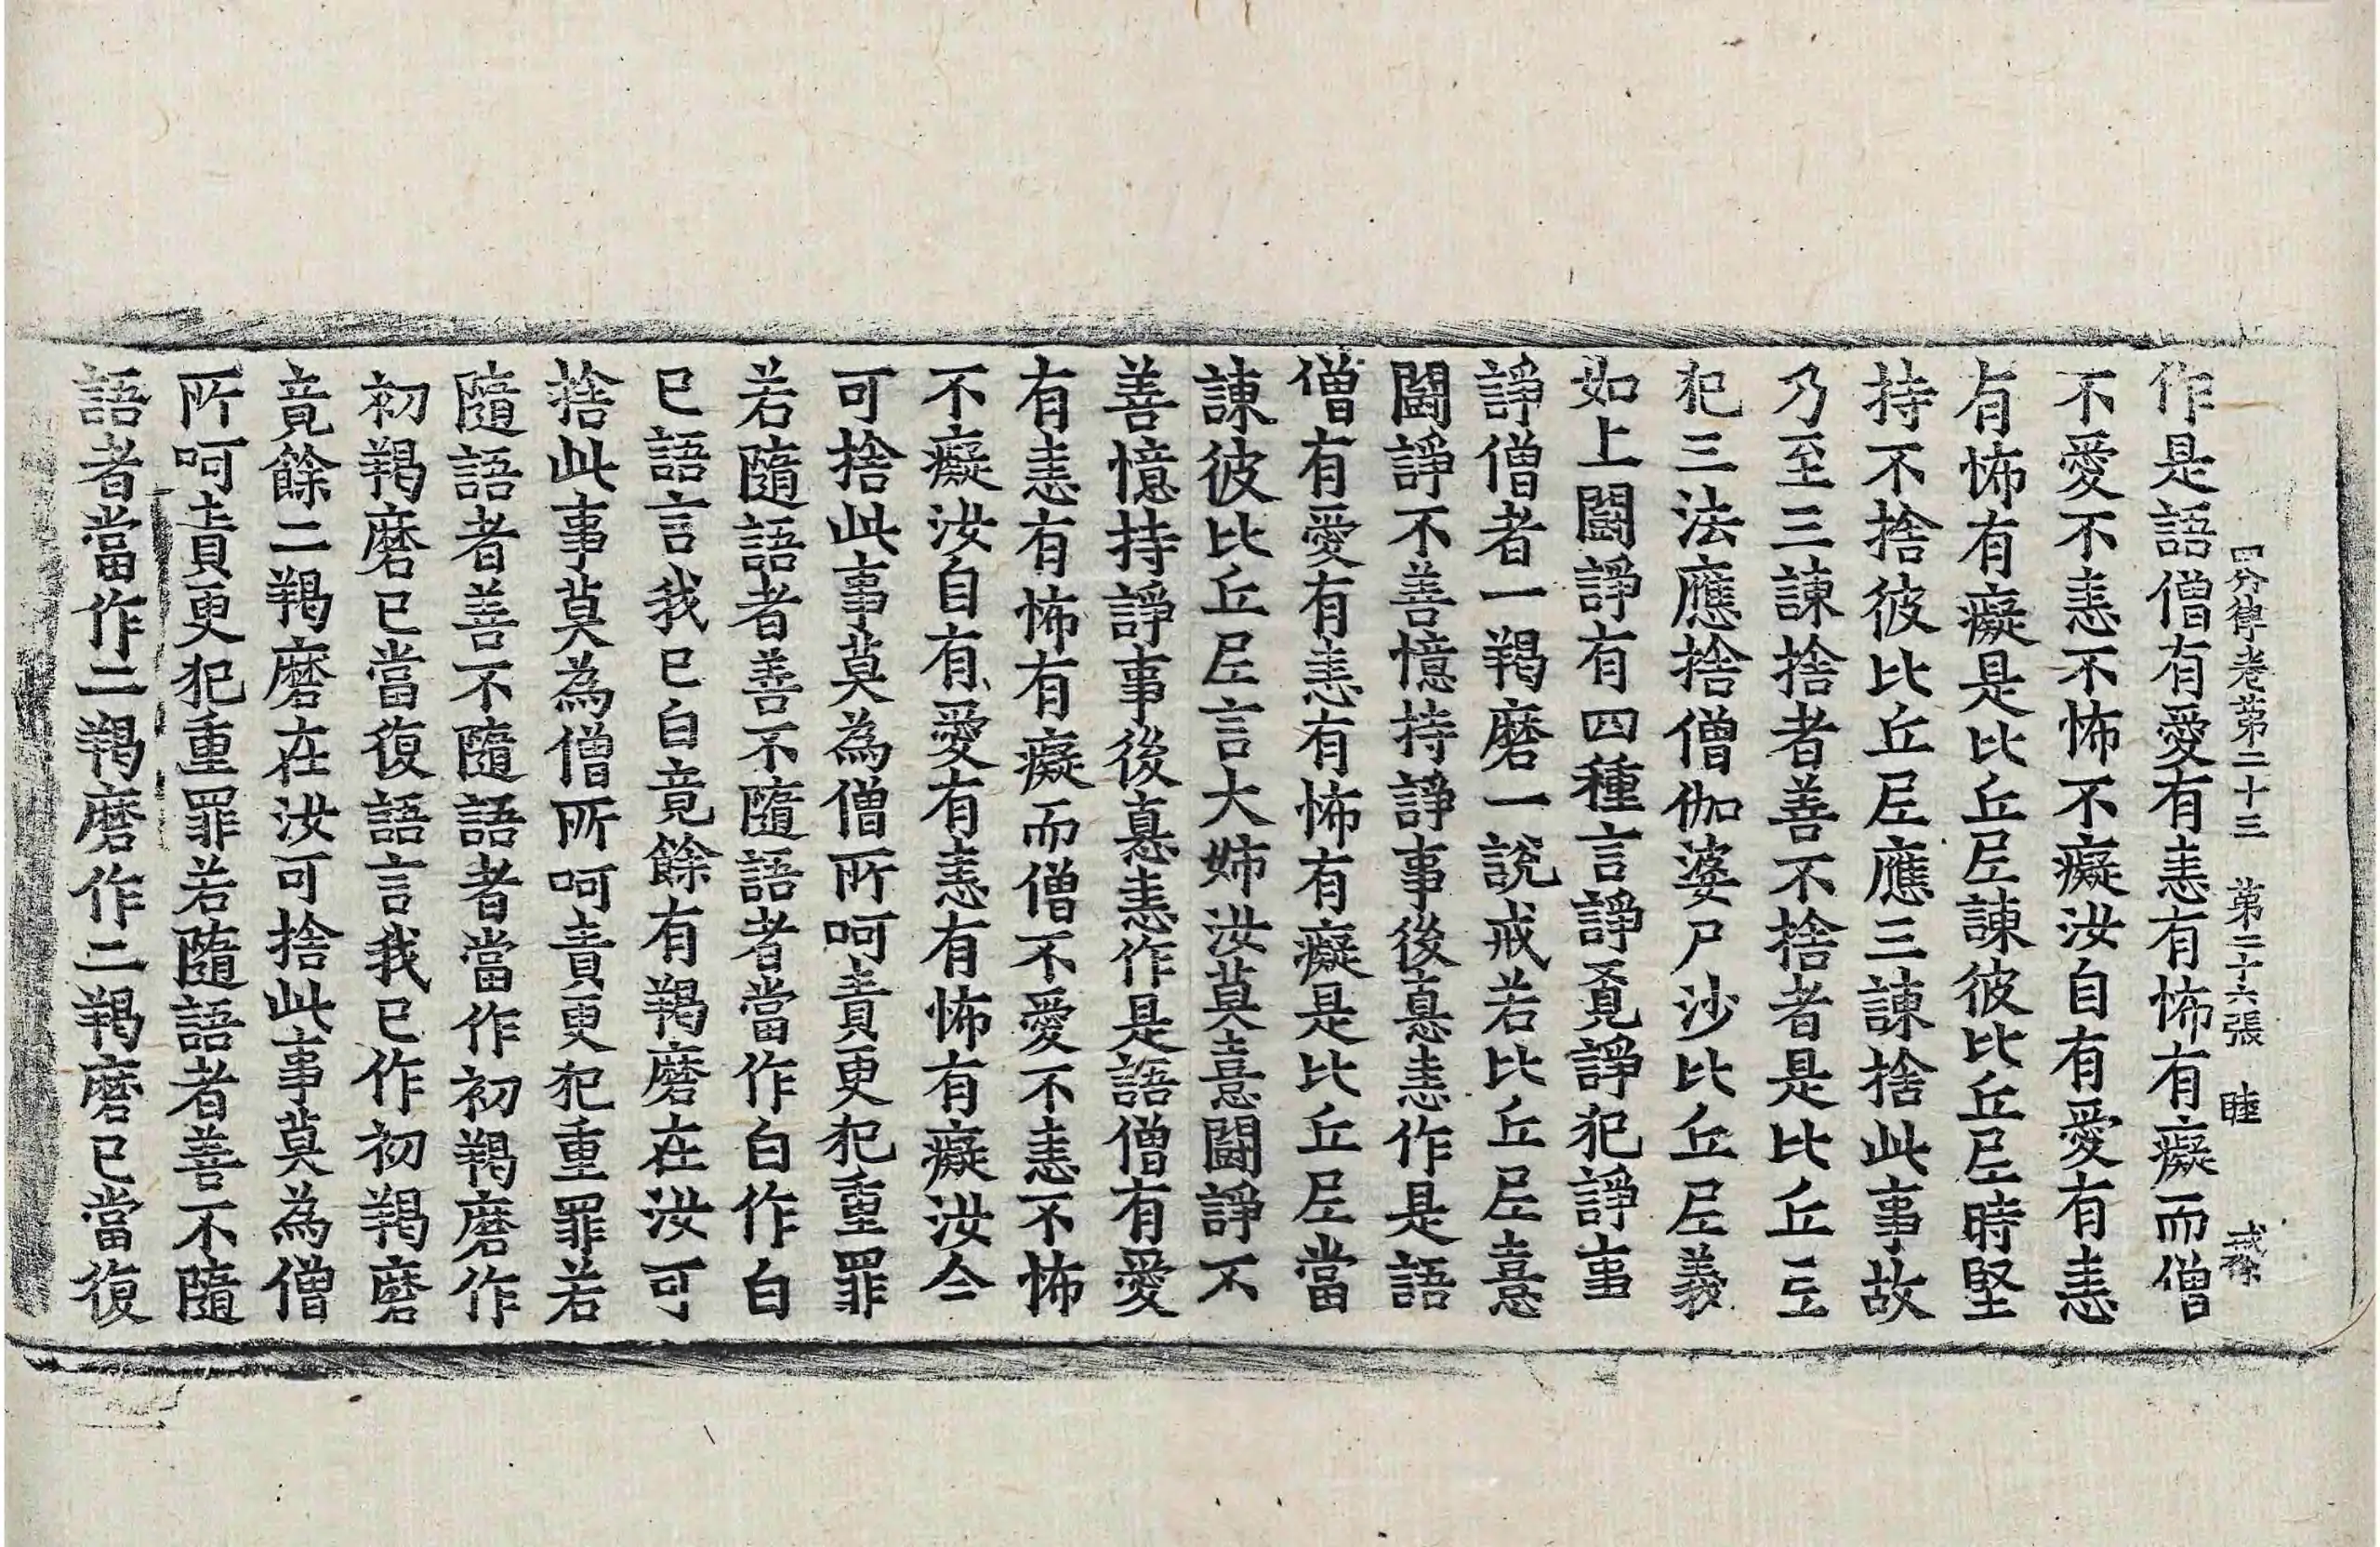 四分律卷第二十三 第二十六張 睦 戒
作是語僧有愛有恚有怖有癡而僧
不愛不恚不怖不癡汝自有愛有恚
有怖有癡是比丘尼諫彼比丘尼時堅
持不捨彼比丘尼應三諫捨此事故
乃至三諫捨者善不捨者是比丘尼
犯三法應捨僧伽婆尸沙比丘尼義
如上鬪諍有四種言諍覓諍犯諍事
諍僧者一羯磨一說戒若比丘尼憙
鬪諍不善憶持諍事後瞋恚作是語
僧有愛有恚有怖有癡是比丘尼當
諫彼比丘尼言大姊汝莫憙鬪諍不
善憶持諍事後瞋恚作是語僧有愛
有恚有怖有癡而僧不愛不恚不怖
不癡汝自有愛有恚有怖有癡汝今
可捨此事莫為僧所呵責更犯重罪
若隨語者善不隨語者當作白作白
已語言我已白竟餘有羯磨在汝可
捨此事莫為僧所呵責更犯重罪若
隨語者善不隨語者當作初羯磨作
初羯磨已當復語言我已作初羯磨
竟餘二羯磨在汝可捨此事莫為僧
所呵責更犯重罪若隨語者善不隨
語者當作二羯磨作二羯磨已當復